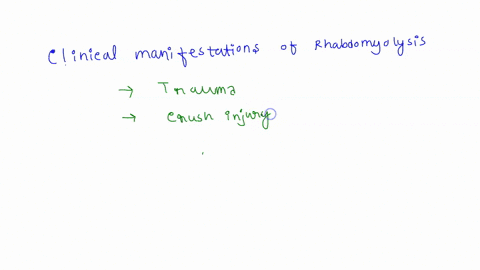 Clinical manifestations of Rhabdomyolysis
→ Trauma
→ Crush injury